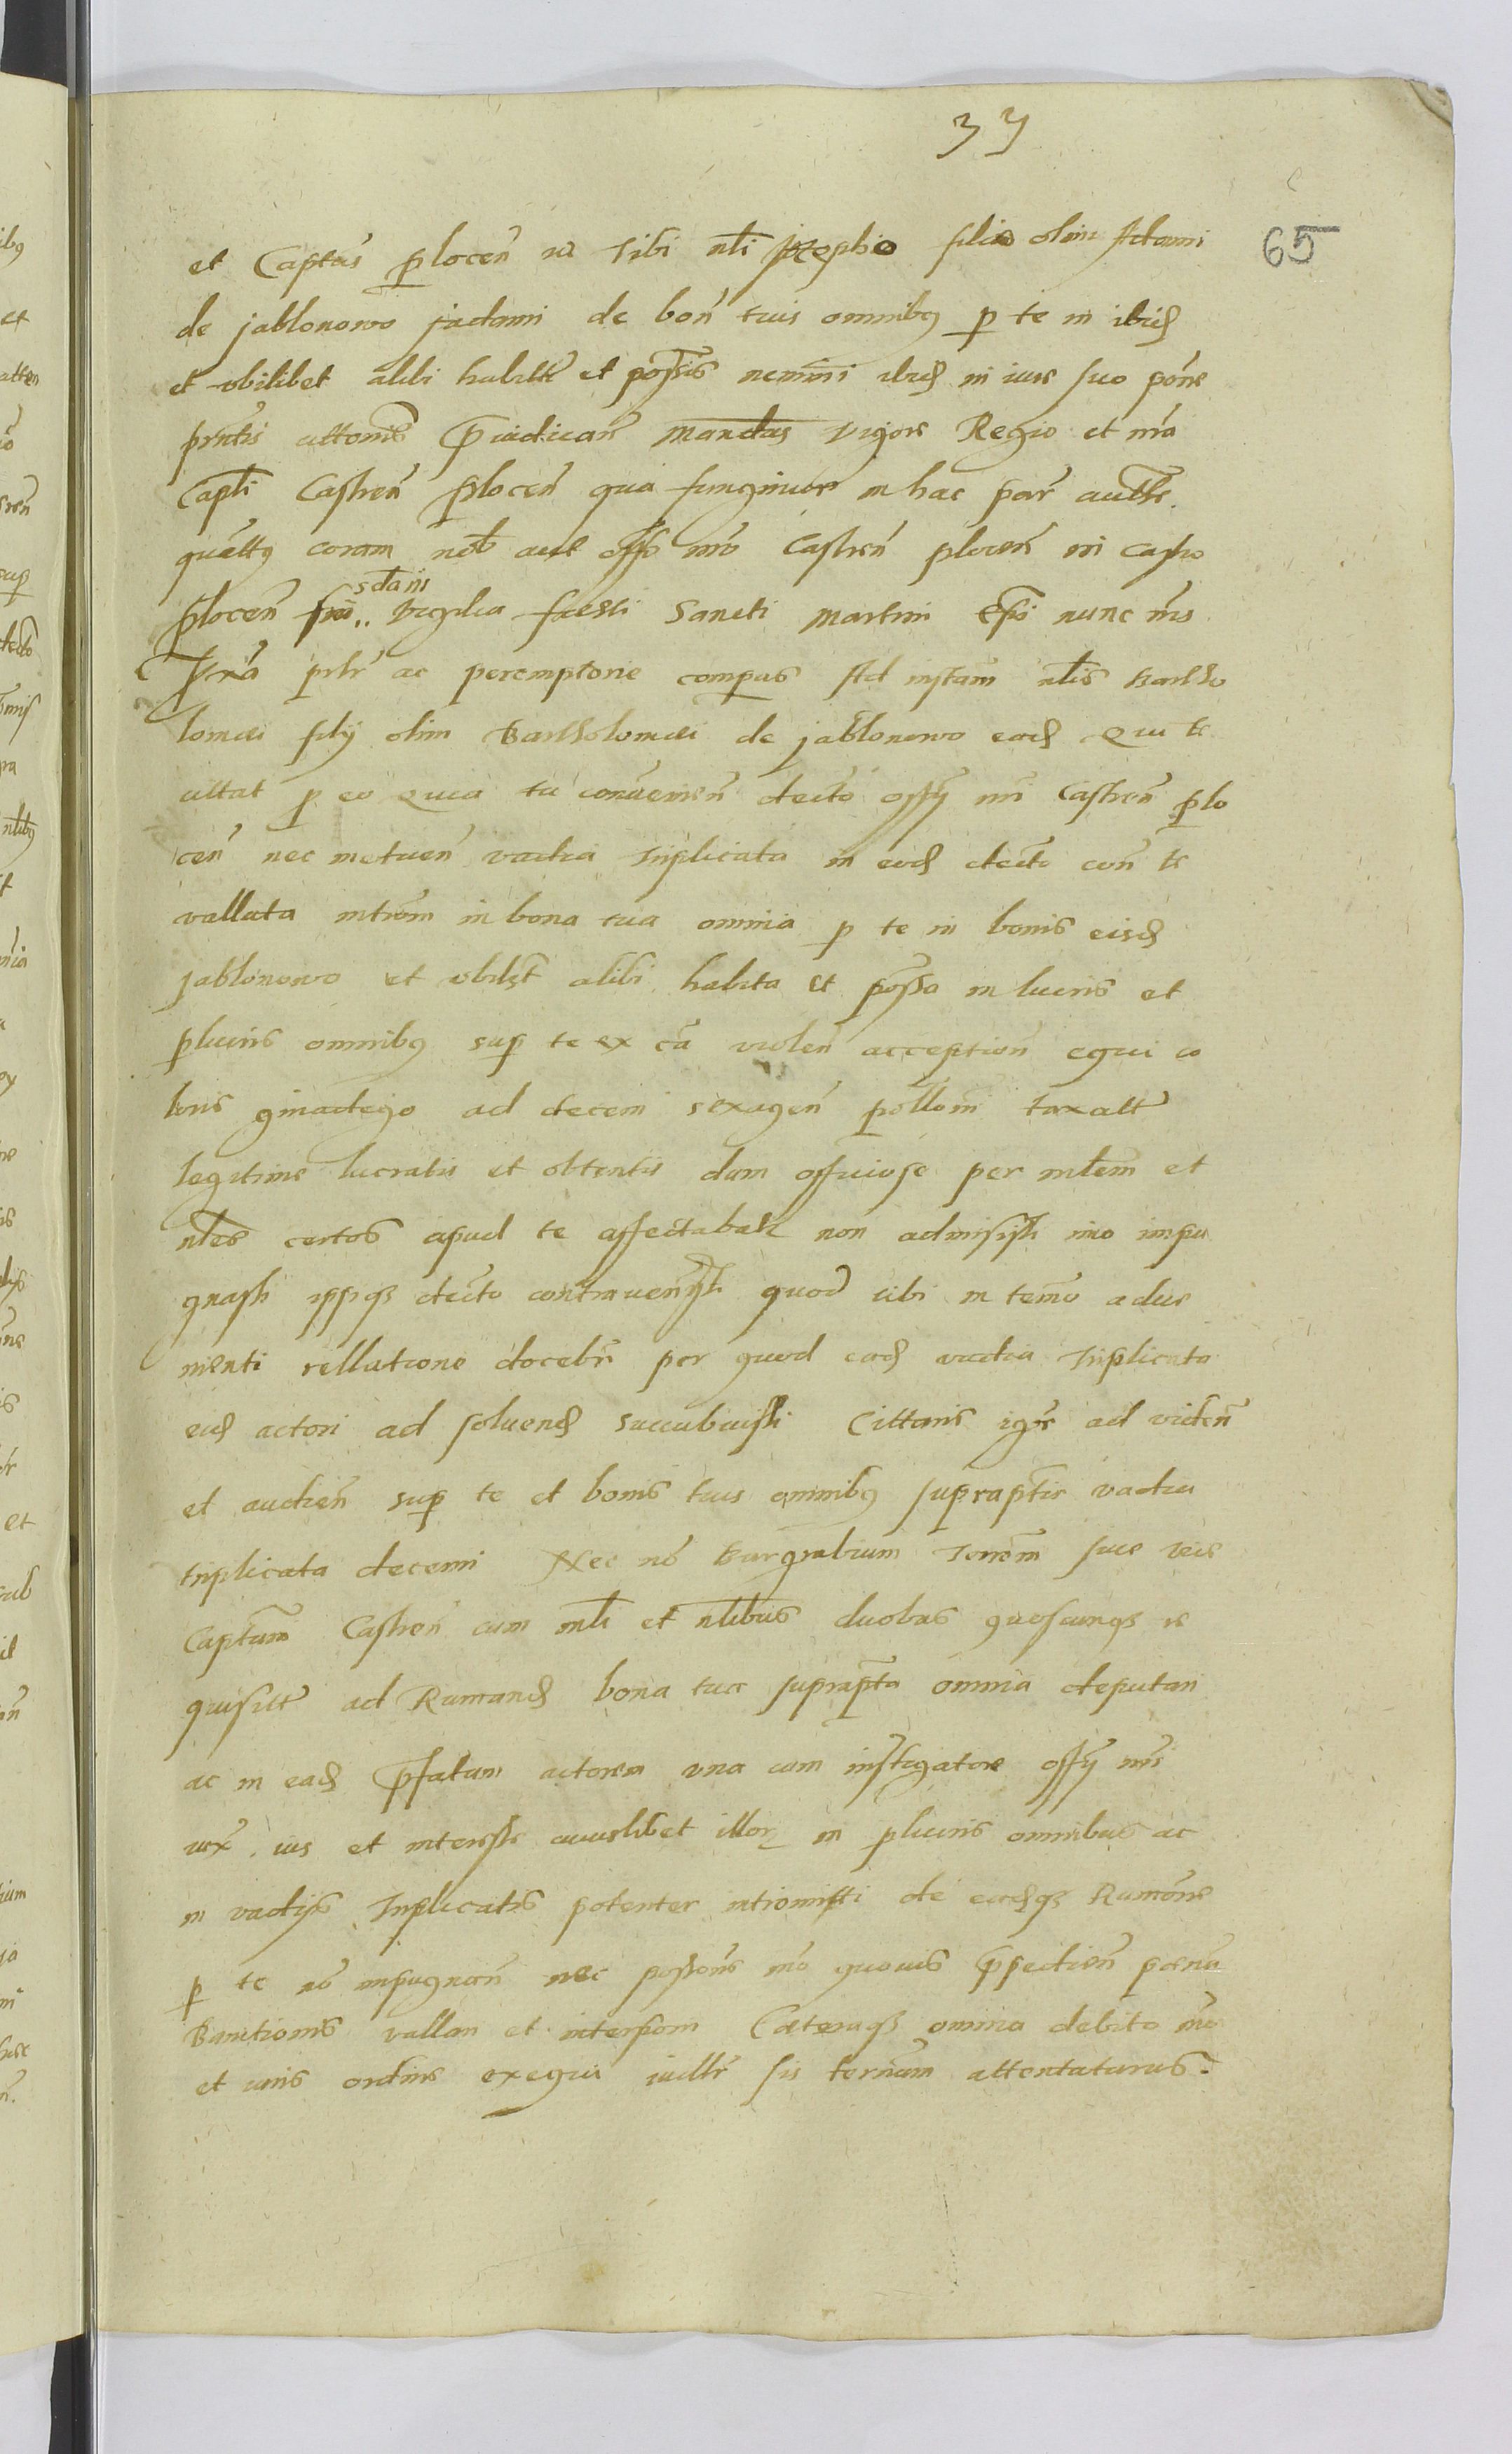 33
65
et Captus plocen̄ tibi nli filio olim Adami
de jablonowo jadami de bon̄ tuis omnibus p te in ibid
et vbilibet alibi habitt et possis ibid in iure suo
mandas vigore Regio et nrā
Capli Castren̄ plocen̄ qua fungimur in hac par̄ autthe.
quattꝫ coram nob aut offo nrō Castren̄ plocen̄ in castro
plocen̄ sdanis vigilia faesti Sancti Martini Epi nunc
ac peremptorie compeas Ad instam̄ nlis Bartho
lomaei filij olim Bartholomaei de jablonowo eod Qui te
cittat p eo Quia tu conūenien̄ decto offij nri Castren̄ plo
cen̄ nec metuen̄ vadia triplicata in eod decto con̄ te
vallata intrōm in bona tua omnia p te in bonis eisd
jablonowo et vbilibt alibi habita et possa in lucris et
pluciris omnibꝫ sup te ex cā violen̄ acception̄ equi co
loris gniadego ad decem sexagen̄ taxatt
legitime lucratis et obtentis dum officiose per mltem et
nles certos apud te affectabatr non admisisti imo impu
gnasti ipsiqꝫ decto contravenisti quod tibi in termō adue
nienti rellatione docebr̄ per quod ead vadia triplicata
eid actori ad soluend succubuisti Cittaris igr̄ ad viden̄
et audien̄ sup te et bonis tuis omnibꝫ suprapttis vadia
triplicata decerni Nec nō Burgrabium Terrōm siue vice
Captum Castren̄ cum mli et nlibus duobus quoscunqꝫ re
quisitt ad Rumand bona tua suprapta omnia deputari
ac in ead pfatum actorem vna cum instigatore offij nri
iux. ius et interesse cuiuslibet illorꝫ in pluciris omnibus ac
in vadijs triplicatis potenter intromitti de eisdqꝫ Rumōne
p te nō impugnan̄ nec possone mō quouis pspedien̄ poena
Banitionis vallari et interponi Caeteraqꝫ omnia debito mō
et iuris ordine exequi iudltr sis ternum attentaturus.